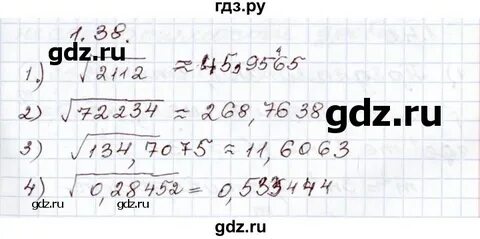 гдз.ру
1.38.
1.) √2112 ≈ 45,9565
2) √72234 ≈ 268,7638
3) √134,7075 ≈ 11,6063
4) √0,28452 = 0,533444
gdz.ru gdz.ru
gdz.ru gdz.ru
gdz.ru gdz.ru